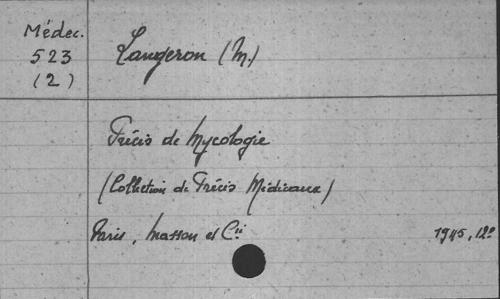 Médec.
523
(2)
Langeron (M.)
Précis de Mycologie
(Collection de Précis Médicaux)
Paris, Masson et Cie
1945, 12º